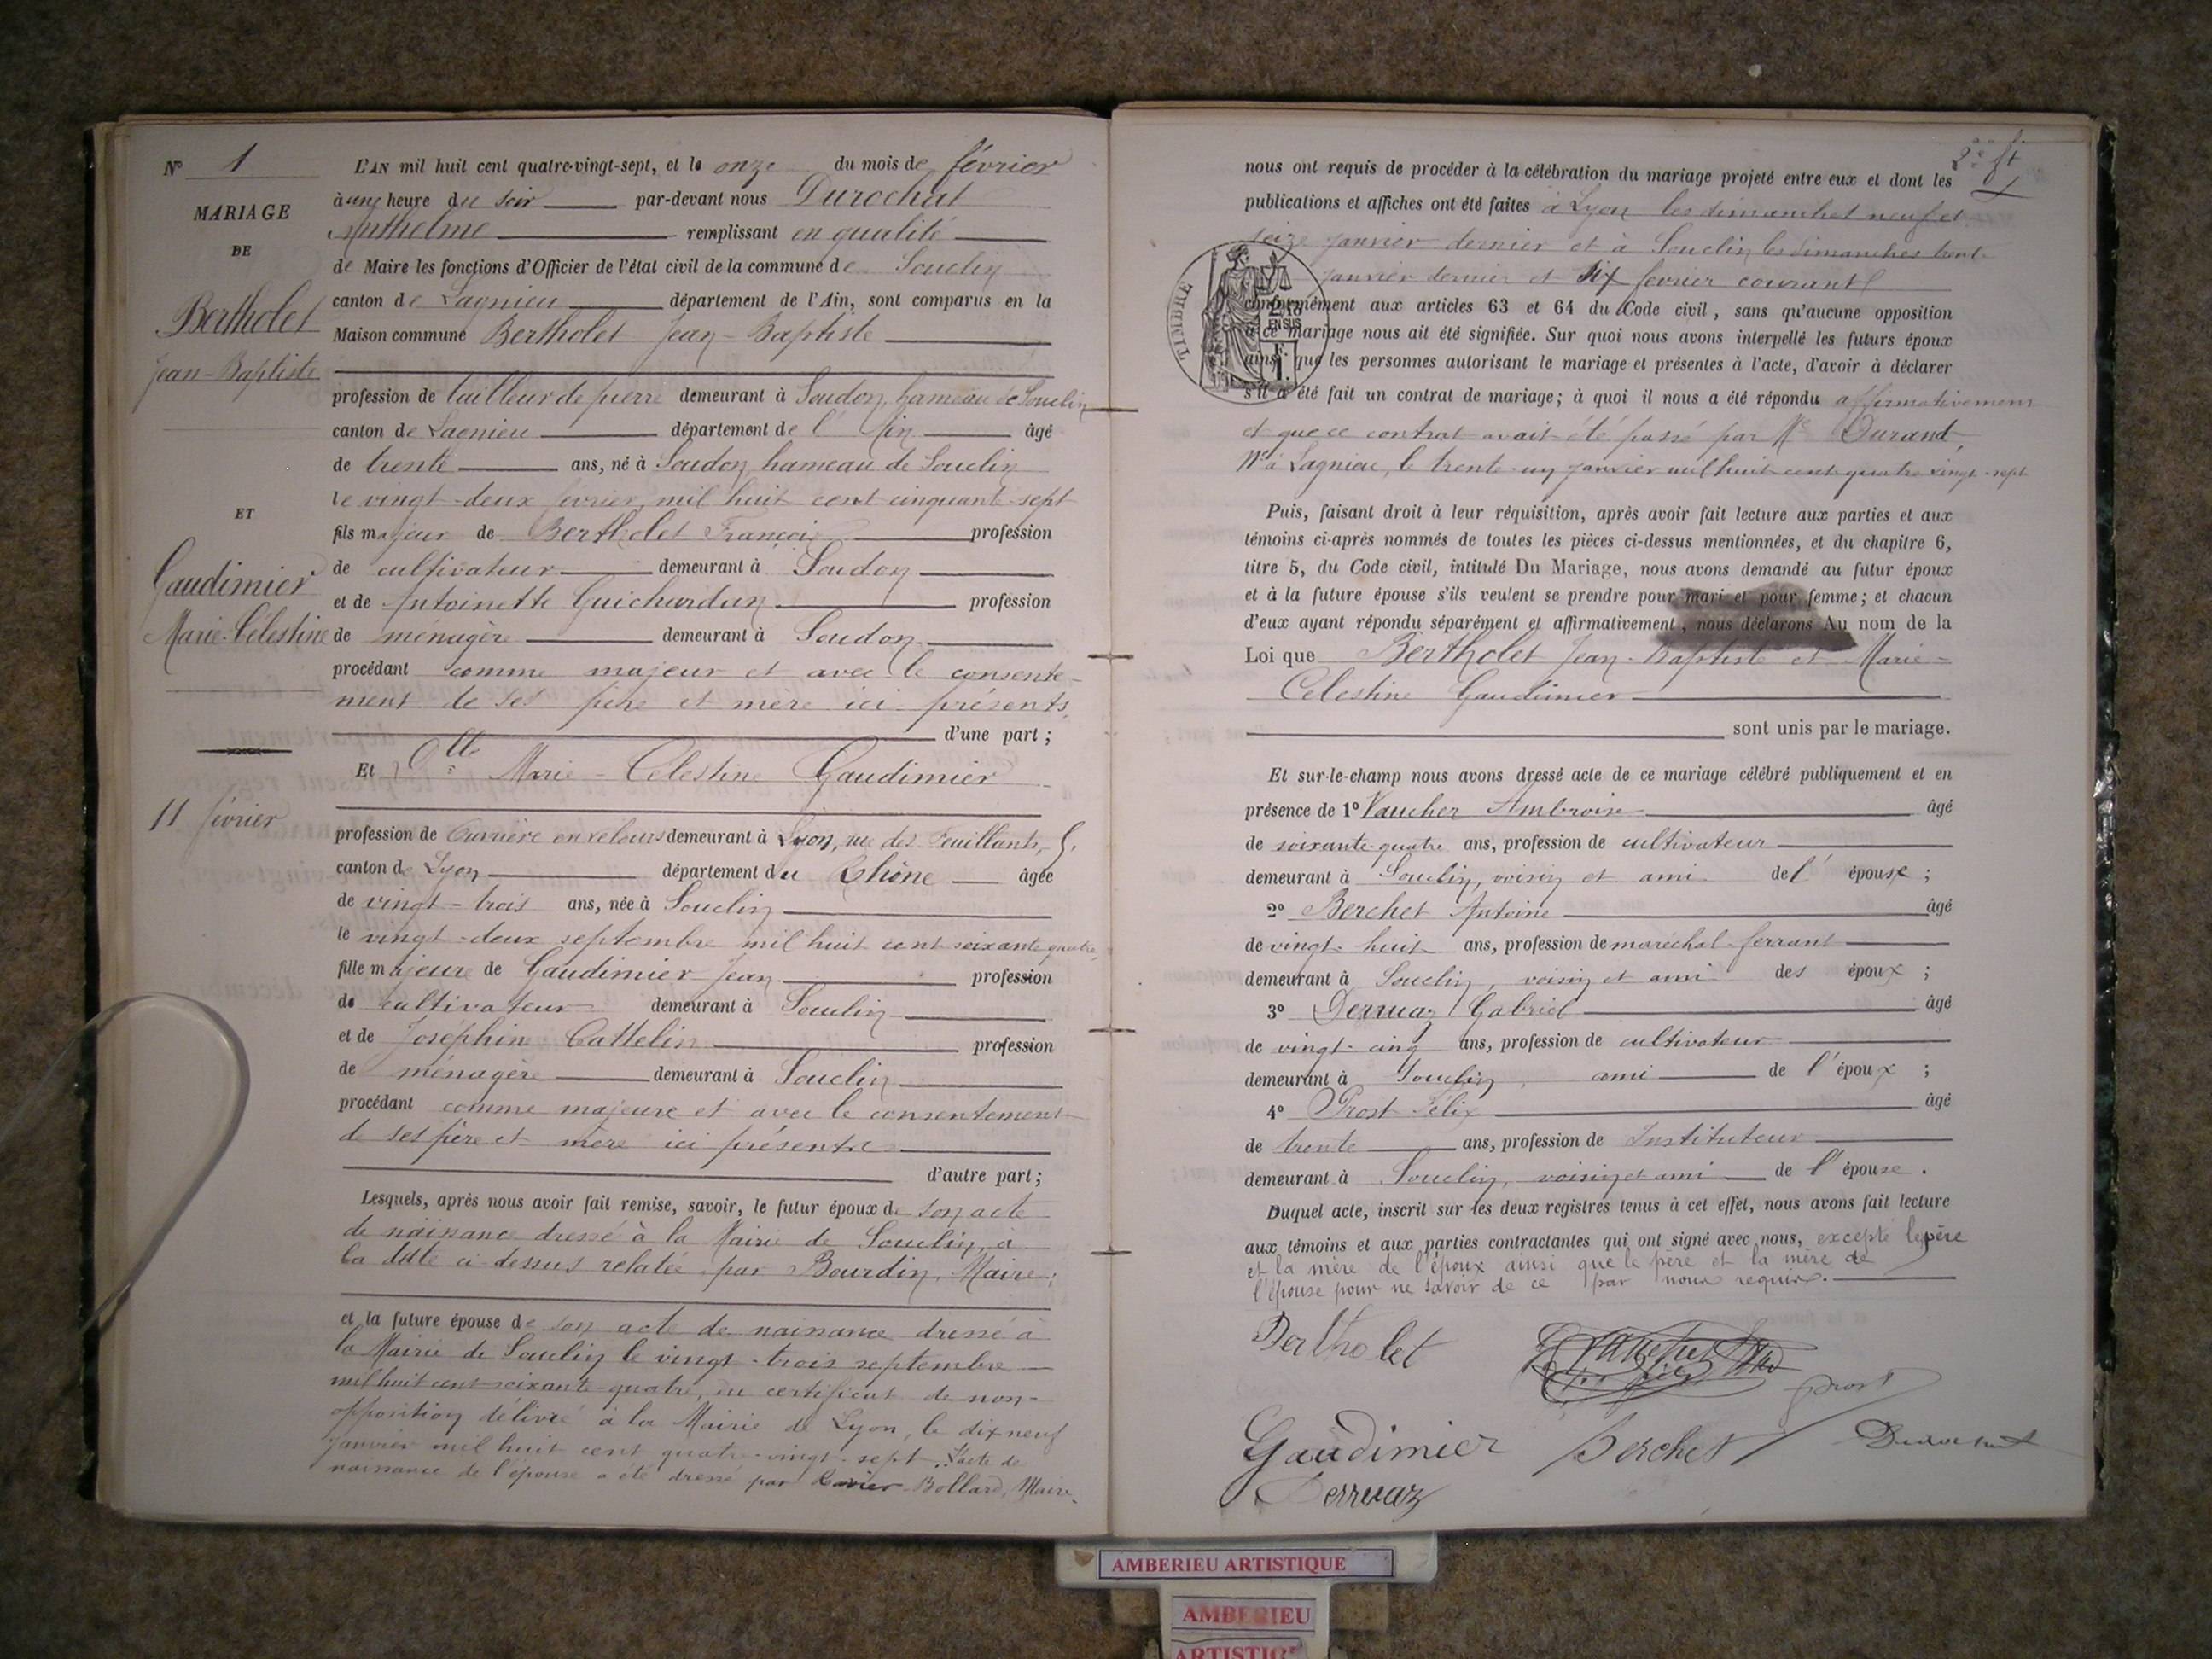 N° 1
MARIAGE
DE
Bertholet
Jean-Baptiste
ET
Gaudimier
Marie-Célestine
11 février
L'AN mil huit cent quatre-vingt-sept, et le onze du mois de février
à une heure du soir par-devant nous Durochat
Anthelme remplissant en qualité
de Maire les fonctions d'Officier de l'état civil de la commune de Souclin
canton de Lagnieu département de l'Ain, sont comparus en la
Maison commune Bertholet Jean-Baptiste
profession de tailleur de pierre demeurant à Soudon, hameau de Souclin
canton de Lagnieu département de l'Ain âgé
de trente ans, né à Soudon, hameau de Souclin
le vingt-deux février mil huit cent cinquante-sept
fils majeur de Bertholet François profession
de cultivateur demeurant à Soudon
et de Antoinette Guichardun profession
de ménagère demeurant à Soudon
procédant comme majeur et avec le consente-
ment de ses père et mère ici présents,
d'une part ;
Et Dlle Marie-Célestine Gaudimier
profession de Ouvrière en velours demeurant à Lyon, rue des Feuillants, 5,
canton de Lyon département du Rhône âgée
de vingt-trois ans, née à Souclin
le vingt-deux septembre mil huit cent soixante quatre,
fille majeure de Gaudimier Jean profession
de cultivateur demeurant à Souclin
et de Joséphine Cattelin profession
de ménagère demeurant à Souclin
procédant comme majeure et avec le consentement
de ses père et mère ici présents
d'autre part ;
Lesquels, après nous avoir fait remise, savoir, le futur époux de son acte
de naissance dressé à la Mairie de Souclin, à
la date ci-dessus relatée par Bourdin, Maire ;
et la future épouse de son acte de naissance dressé à
la Mairie de Souclin le vingt-trois septembre
mil huit cent soixante-quatre, du certificat de non-
opposition délivré à la Mairie de Lyon, le dix neuf
janvier mil huit cent quatre-vingt-sept. L'acte de
naissance de l'épouse a été dressé par Bollard, Maire.
2e ft
nous ont requis de procéder à la célébration du mariage projeté entre eux et dont les
publications et affiches ont été faites à Lyon les dimanches neuf et
seize janvier dernier et à Souclin les dimanches trente
janvier dernier et six février courant
conformément aux articles 63 et 64 du Code civil, sans qu'aucune opposition
à ce mariage nous ait été signifiée. Sur quoi nous avons interpellé les futurs époux
ainsi que les personnes autorisant le mariage et présentes à l'acte, d'avoir à déclarer
s'il a été fait un contrat de mariage ; à quoi il nous a été répondu affirmativement
et que ce contrat avait été passé par Me Durand,
Nre à Lagnieu, le trente-un janvier mil huit cent quatre vingt-sept
TIMBRE
F.
Puis, faisant droit à leur réquisition, après avoir fait lecture aux parties et aux
témoins ci-après nommés de toutes les pièces ci-dessus mentionnées, et du chapitre 6,
titre 5, du Code civil, intitulé Du Mariage, nous avons demandé au futur époux
et à la future épouse s'ils veulent se prendre pour mari et pour femme ; et chacun
d'eux ayant répondu séparément et affirmativement, nous déclarons Au nom de la
Loi que Bertholet Jean-Baptiste et Marie-
Célestine Gaudimier
sont unis par le mariage.
Et sur-le-champ nous avons dressé acte de ce mariage célébré publiquement et en
présence de 1° Vaucher Ambroise âgé
de soixante-quatre ans, profession de cultivateur
demeurant à Souclin, voisin et ami de l'épouse ;
2° Berchet Antoine âgé
de vingt-huit ans, profession de maréchal-ferrant
demeurant à Souclin, voisin et ami des époux ;
3° Derruaz Gabriel âgé
de vingt-cinq ans, profession de cultivateur
demeurant à Souclin, ami de l'époux ;
4° Prost Félix âgé
de trente ans, profession de Instituteur
demeurant à Souclin, voisin et ami de l'épouse.
Duquel acte, inscrit sur les deux registres tenus à cet effet, nous avons fait lecture
aux témoins et aux parties contractantes qui ont signé avec nous, excepté le père
et la mère de l'époux ainsi que le père et la mère de
l'épouse pour ne savoir de ce par nous requis.
Bertholet
Prost
Gaudimier Berchet Durochat
Derruaz
AMBERIEU ARTISTIQUE
AMBERIEU
ARTISTIQ